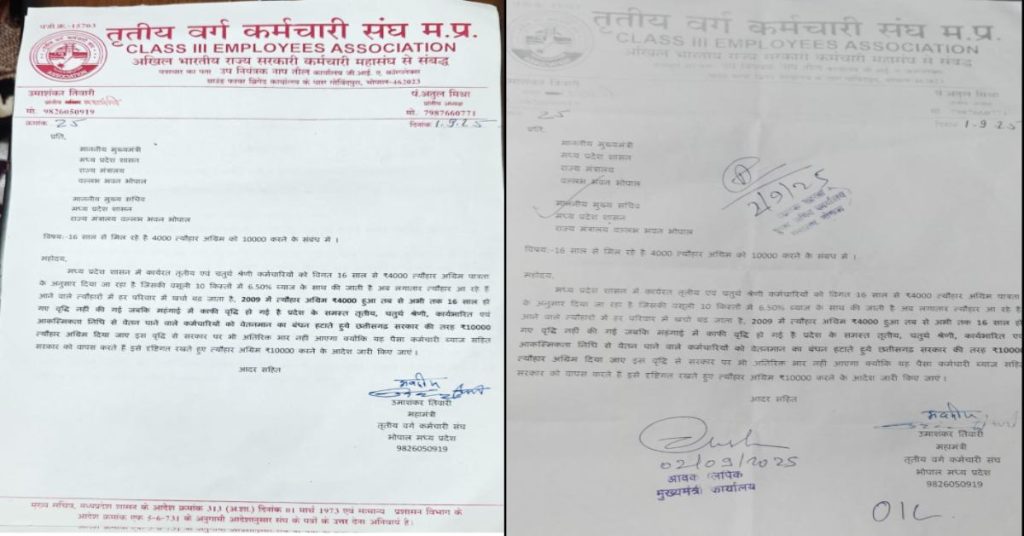 पंजी.क्र.-15703
तृतीय वर्ग कर्मचारी संघ म.प्र.
CLASS III EMPLOYEES ASSOCIATION
अखिल भारतीय राज्य सरकारी कर्मचारी महासंघ से संबद्ध
पत्राचार का पता उप नियंत्रक नाप तौल कार्यालय जी.आई. ए. काम्पलेक्स
गोविंदपुरा, भोपाल-462023
उमाशंकर तिवारी
मो. 9826050919
पं.अतुल मिश्रा
प्रांतीय अध्यक्ष
मो. 7987660771
क्रमांक 25
दिनांक 1.9.25
प्रति,
माननीय मुख्यमंत्री
मध्य प्रदेश शासन
राज्य मंत्रालय
वल्लभ भवन भोपाल
माननीय मुख्य सचिव
मध्य प्रदेश शासन
राज्य मंत्रालय वल्लभ भवन भोपाल
विषय:-16 साल से मिल रहे है 4000 त्यौहार अग्रिम को 10000 करने के संबध में ।
महोदय,
मध्य प्रदेश शासन में कार्यरत तृतीय एवं चतुर्थ श्रेणी कर्मचारियों को विगत 16 साल से ₹4000 त्यौहार अग्रिम पात्रता
के अनुसार दिया जा रहा है जिसकी वसूली 10 किस्तों में 6.50% ब्याज के साथ की जाती है अब लगातार त्यौहार आ रहे हैं
आने वाले त्यौहारों में हर परिवार में खर्चा बढ जाता है, 2009 में त्यौहार अग्रिम ₹4000 हुआ तब से अभी तक 16 साल हो
गए वृद्धि नहीं की गई जबकि महंगाई में काफी वृद्धि हो गई है प्रदेश के समस्त तृतीय, चतुर्थ श्रेणी, कार्यभारित एवं
आकस्मिकता निधि से वेतन पाने वाले कर्मचारियों को वेतनमान का बंधन हटाते हुये छत्तीसगढ़ सरकार की तरह ₹10000
त्यौहार अग्रिम दिया जाए इस वृद्धि से सरकार पर भी अतिरिक्त भार नही आएगा क्योंकि यह पैसा कर्मचारी ब्याज सहित
सरकार को वापस करते हैं इसे दृष्टिगत रखते हुए त्यौहार अग्रिम ₹10000 करने के आदेश जारी किए जाएं ।
आदर सहित
उमाशंकर तिवारी
महामंत्री
तृतीय वर्ग कर्मचारी संघ
भोपाल मध्य प्रदेश
9826050919
मुख्य सचिव, मध्यप्रदेश शासन के आदेश क्रमांक 313 (अ.शा.) दिनांक 01 मार्च 1973 एवं सामान्य प्रशासन विभाग के
आदेश क्रमांक एफ 5-6-731 के अनुगामी आदेशानुसार संघ के पत्रों के उत्तर देना अनिवार्य है।
तृतीय वर्ग कर्मचारी संघ म.प्र.
CLASS III EMPLOYEES ASSOCIATION
अखिल भारतीय राज्य सरकारी कर्मचारी महासंघ से संबद्ध
पं.अतुल मिश्रा
प्रांतीय अध्यक्ष
मो. 7987660771
25
1.9.25
प्रति,
माननीय मुख्यमंत्री
मध्य प्रदेश शासन
राज्य मंत्रालय
वल्लभ भवन भोपाल
2/9/25
माननीय मुख्य सचिव
मध्य प्रदेश शासन
राज्य मंत्रालय वल्लभ भवन भोपाल
विषय:-16 साल से मिल रहे है 4000 त्यौहार अग्रिम को 10000 करने के संबध में ।
महोदय,
मध्य प्रदेश शासन में कार्यरत तृतीय एवं चतुर्थ श्रेणी कर्मचारियों को विगत 16 साल से ₹4000 त्यौहार अग्रिम पात्रता
के अनुसार दिया जा रहा है जिसकी वसूली 10 किस्तों में 6.50% ब्याज के साथ की जाती है अब लगातार त्यौहार आ रहे हैं
आने वाले त्यौहारों में हर परिवार में खर्चा बढ जाता है, 2009 में त्यौहार अग्रिम ₹4000 हुआ तब से अभी तक 16 साल हो
गए वृद्धि नहीं की गई जबकि महंगाई में काफी वृद्धि हो गई है प्रदेश के समस्त तृतीय, चतुर्थ श्रेणी, कार्यभारित एवं
आकस्मिकता निधि से वेतन पाने वाले कर्मचारियों को वेतनमान का बंधन हटाते हुये छत्तीसगढ़ सरकार की तरह ₹10000
त्यौहार अग्रिम दिया जाए इस वृद्धि से सरकार पर भी अतिरिक्त भार नही आएगा क्योंकि यह पैसा कर्मचारी ब्याज सहित
सरकार को वापस करते हैं इसे दृष्टिगत रखते हुए त्यौहार अग्रिम ₹10000 करने के आदेश जारी किए जाएं ।
आदर सहित
उमाशंकर तिवारी
महामंत्री
तृतीय वर्ग कर्मचारी संघ
भोपाल मध्य प्रदेश
9826050919
02/09/2025
आवक लिपिक
मुख्यमंत्री कार्यालय